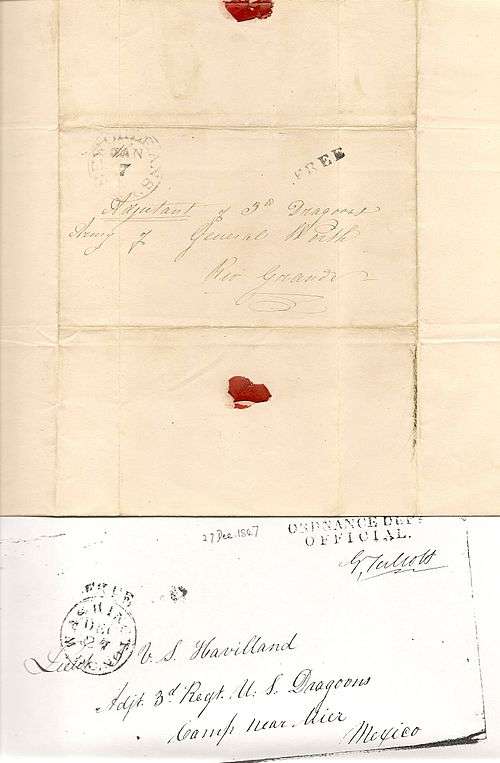 NEW ORLEANS
JAN
7
FREE
Adjutant of 3d Dragoons
Army of General Worth
Rio Grande
27 Dec. 1847
ORDNANCE DEPT
OFFICIAL.
G. Talcott
FREE
WASHINGTON
DEC
27
Lieut V. S. Havilland
Adjt. 3d Regt. U. S. Dragoons
Camp near Mier
Mexico